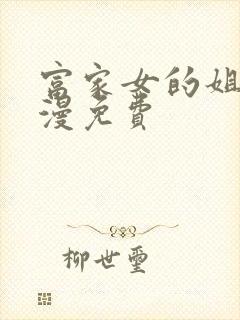 富家女的姐
漫免费
柳世玺